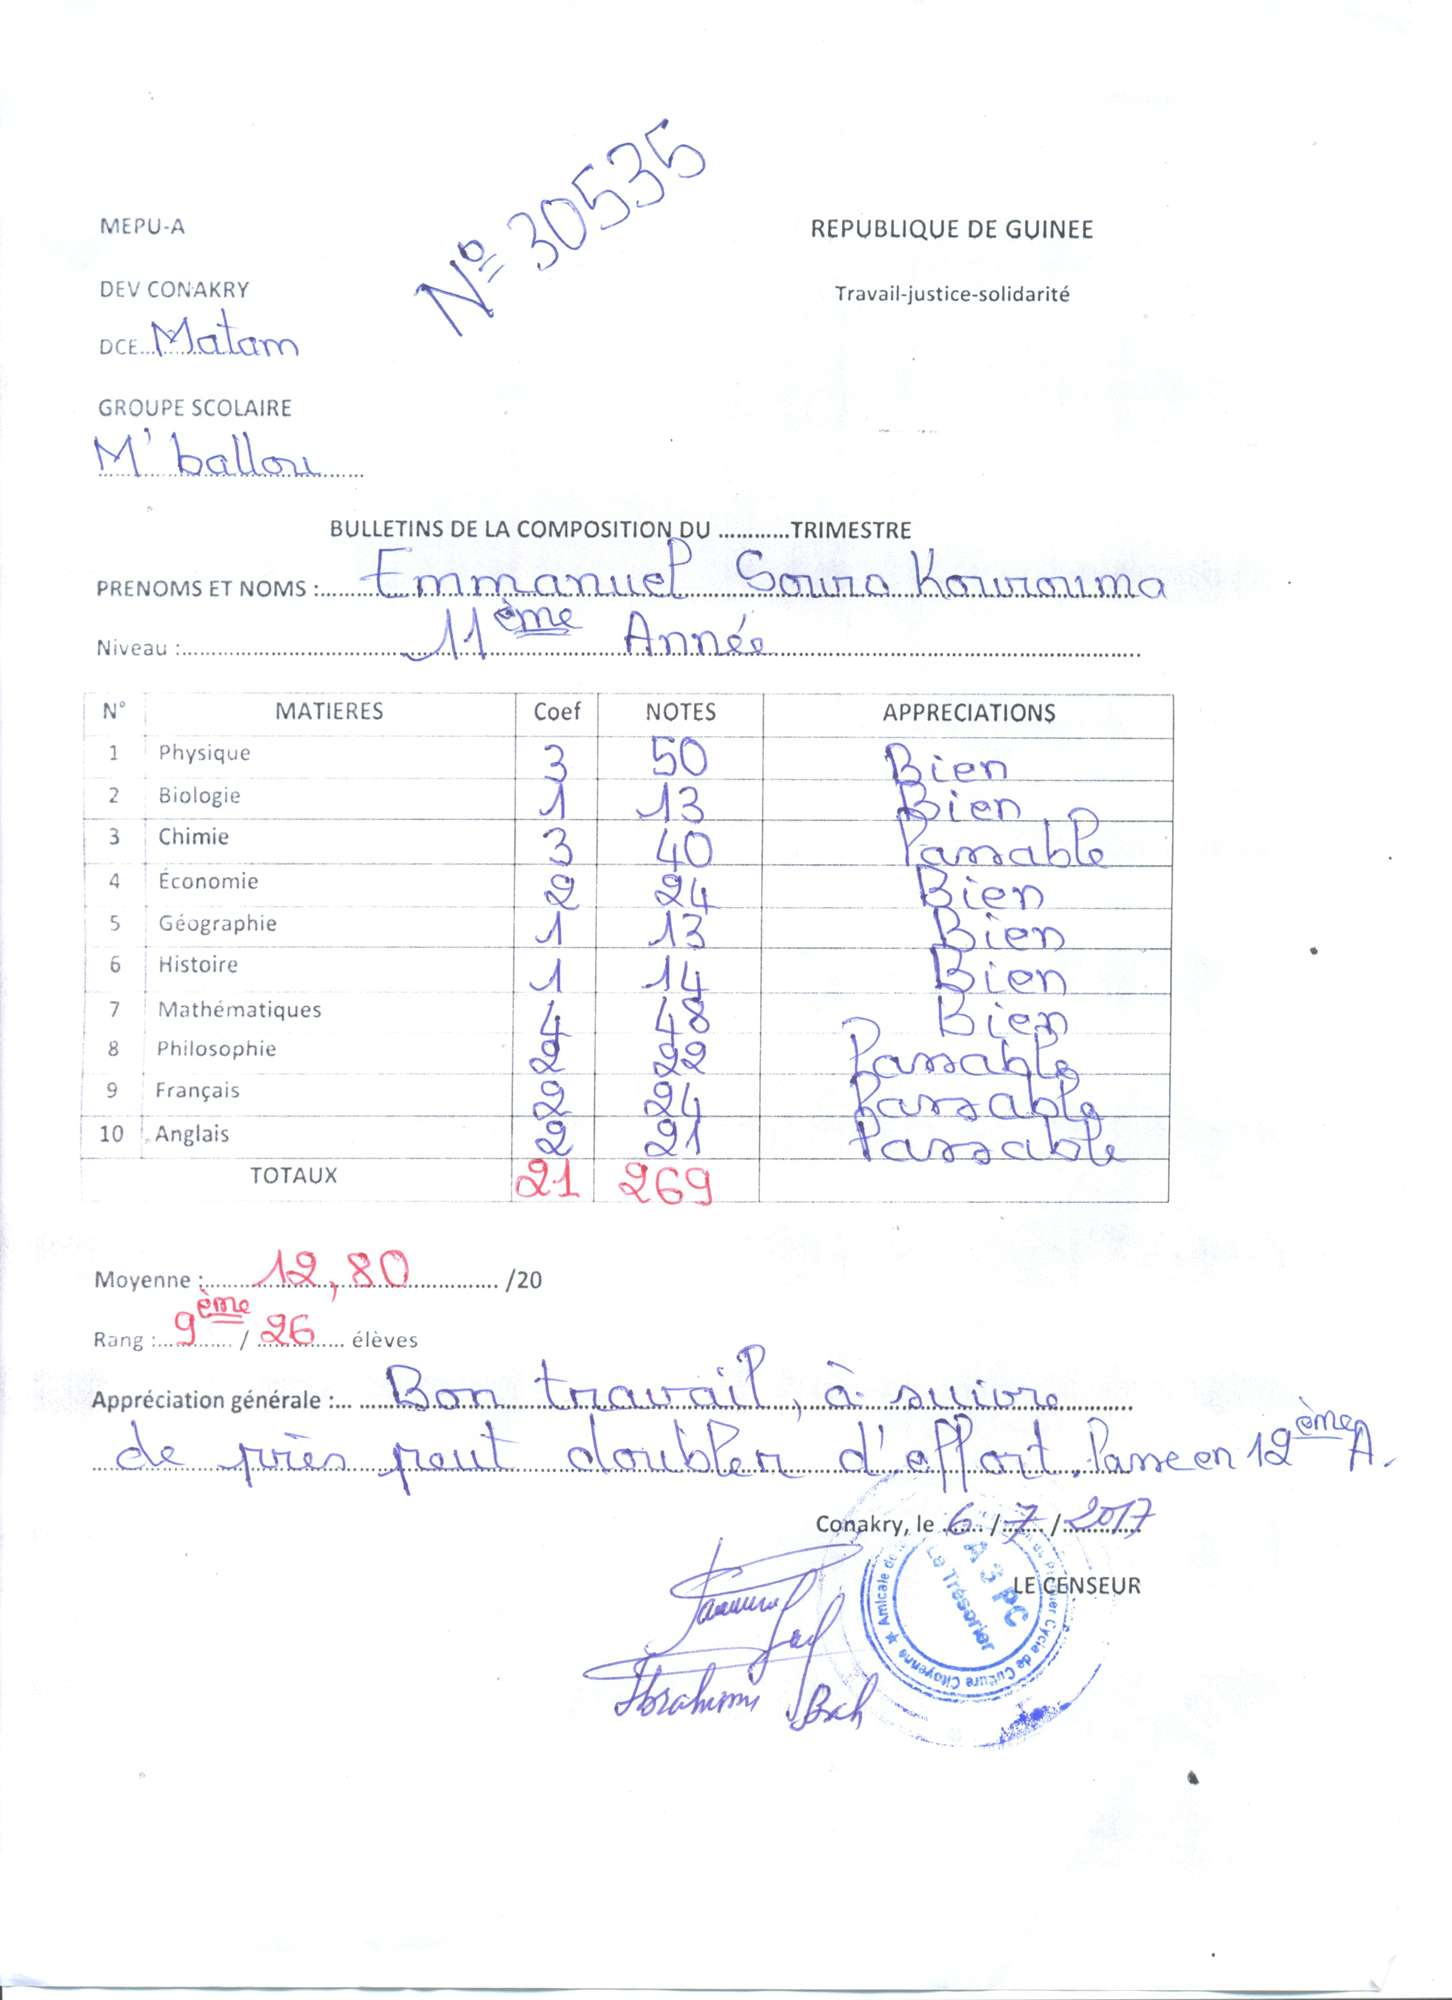 N° 30535
MEPU-A
REPUBLIQUE DE GUINEE
DEV CONAKRY
Travail-justice-solidarité
DCE...Matam
GROUPE SCOLAIRE
M'ballou
BULLETINS DE LA COMPOSITION DU ............TRIMESTRE
PRENOMS ET NOMS : Emmanuel Souro Kourouma
Niveau : 11ème Année
N° MATIERES Coef NOTES APPRECIATIONS
1 Physique 3 50 Bien
2 Biologie 1 13 Bien
3 Chimie 3 40 Passable
4 Économie 2 24 Bien
5 Géographie 1 13 Bien
6 Histoire 1 14 Bien
7 Mathématiques 4 48 Bien
8 Philosophie 2 22 Passable
9 Français 2 24 Passable
10 Anglais 2 21 Passable
TOTAUX 21 269
Moyenne : 12,80 /20
Rang : 9ème / 26 élèves
Appréciation générale : Bon travail, à suivre
de près peut doubler d'effort. Passe en 12ème A.
Conakry, le 6 / 7 / 2017
LE CENSEUR
A 3 PC
Le Trésorier
Premier Cycle de Culture Citoyenne ★ Amicale de
Ibrahima Bah